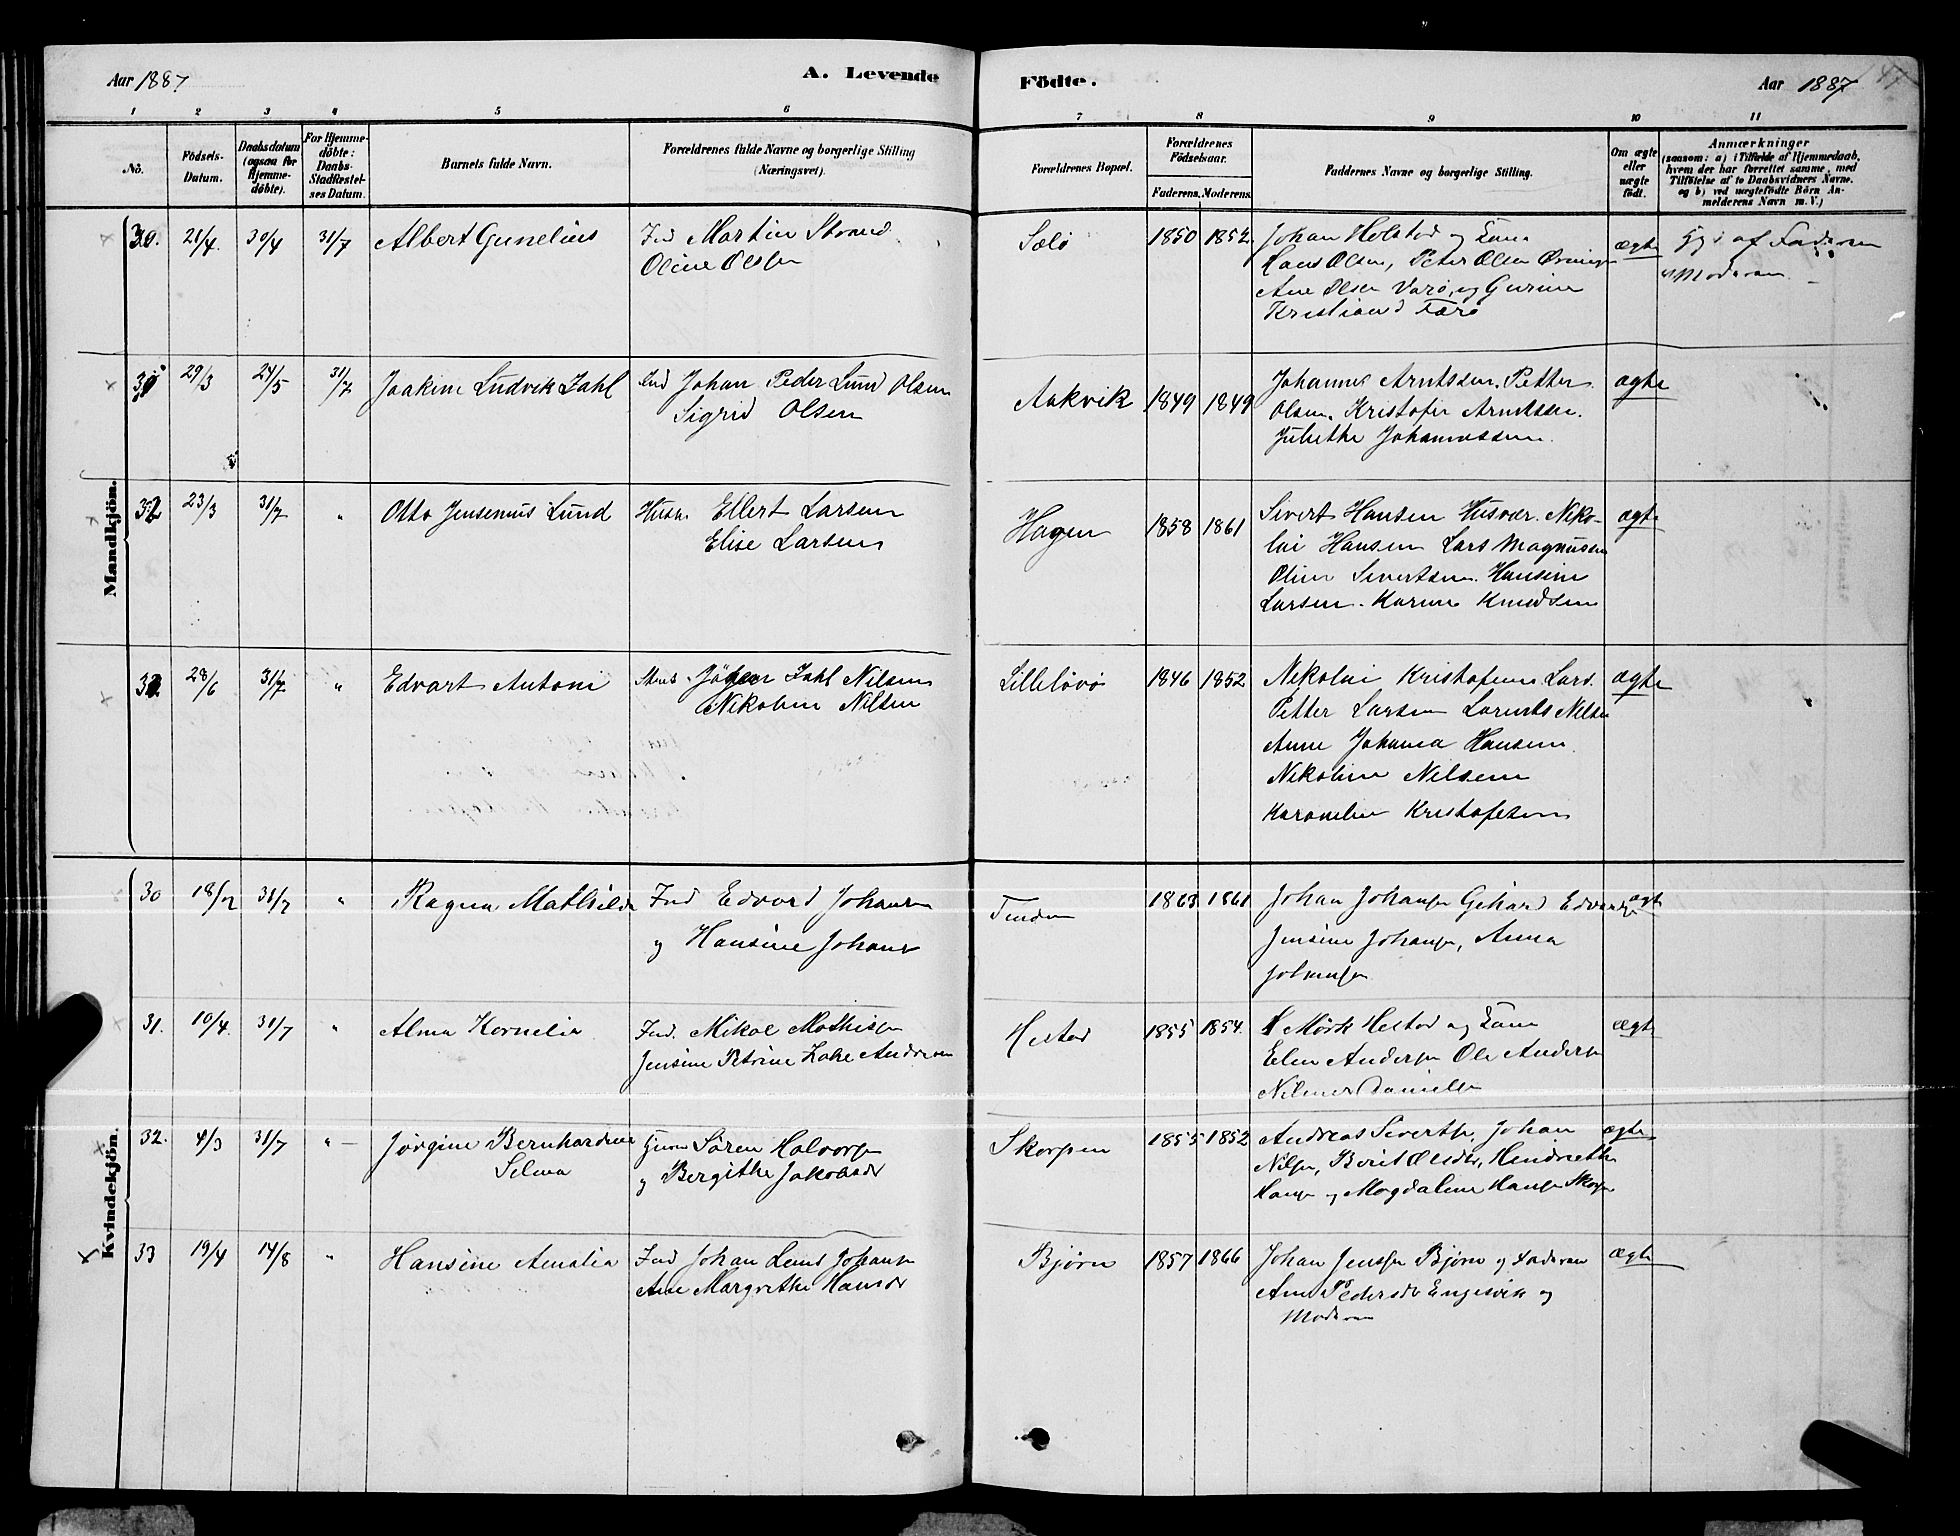 Aar 1887
A. Levende
Födte.
Aar 1887
1 2 3 4 5 6 7 8 9 10 11
No.
Födsels-Datum.
Daabsdatum (ogsaa for Hjemme-döbte).
For Hjemme-döbte: Daabs-Stadfæstel-ses Datum.
Barnets fulde Navn.
Forældrenes fulde Navne og borgerlige Stilling (Næringsvei).
Forældrenes Bopæl.
Forældrenes Födselsaar.
Faderens. Moderens.
Faddernes Navne og borgerlige Stilling.
Om ægte eller uægte födt.
Anmærkninger
(saasom: a) i Tilfælde af Hjemmedaab, hvem der har forrettet samme, med Tilföielse af to Daabsvidners Navne. og b) ved uægtefödte Börn Anmelderens Navn m. V.)
Mandkjön.
30. 21/4. 30/4 31/7 Albert Gunelius Ind Martin Strand
Oline Olsen
Sælö 1850 1852. Johan Holstad og Kone
Hans Olsen, Peter Olsen
Ane Olsen Varö, og Gurine
Kristiansd Færö
ægte
af Faderen
Moderen
31 29/3 24/5 31/7 Joakim Ludvik Zahl Ind Johan Peder Lund Olsen
Sigrid Olsen
Aakvik 1849 1849 Johannes Arntssen. Petter
Olsen. Kristofer Arntssen.
Julithe Johannessen.
ægte
32 23/3 31/7 " Otto Jensenius Lund Husm. Ellert Larsen
Elise Larsen
Hagen 1858 1861 Sivert Hansen Husvær. Niko-
lai Hansen Lars Magnusen
Oline Sivertsen. Hansine
Larsen. Karen Knudsen
ægte
33 28/6 31/7 " Edvart Antoni Jörgen Zahl Nilsen
Nikoline Nilsen
Lillelövö 1846 1852 Nikolai Kristofersen Lars.
Petter Larsen Lorents Nilsen
Anne Johanna Hansen.
Nikoline Nilsen
Karoneline Kristofersen
ægte
Kvindekjön.
30 18/2 31/7 " Ragna Mathilde Ind Edvard Johansen
og Hansine Johans
Tinden 1863 1861 Johan Johansen Gehard Edvardsen
Jensine Johansen, Anna
Johansen
ægte
31. 10/4. 31/7 " Alma Kornelia Ind. Mikal Mathisen
Jensine Petrine Andersen
Hestad 1855 1854. Mörk Hestad og Kone
Elen Andersen Ole Andersen
Danielsen
ægte
32. 4/3 31/7 " Jörgine Bernhardine
Selma
Sören Halvorsen
og Bergithe Jakobsdr
Skorpen 1855 1852 Andreas Sivertsen, Johan
Nilsen, Berit Olsdtr, Hendriethe
Hansen og Magdalene Hansen Skorpen
ægte
33 19/4 14/8 " Hansine Amalia Ind Johan Lund Johansen
Ane Margrethe Hansdr
Bjørn 1857 1866 Johan Jenssen Bjørn og Faderen
Ane Pedersdr Engesvik og
Moderen
ægte